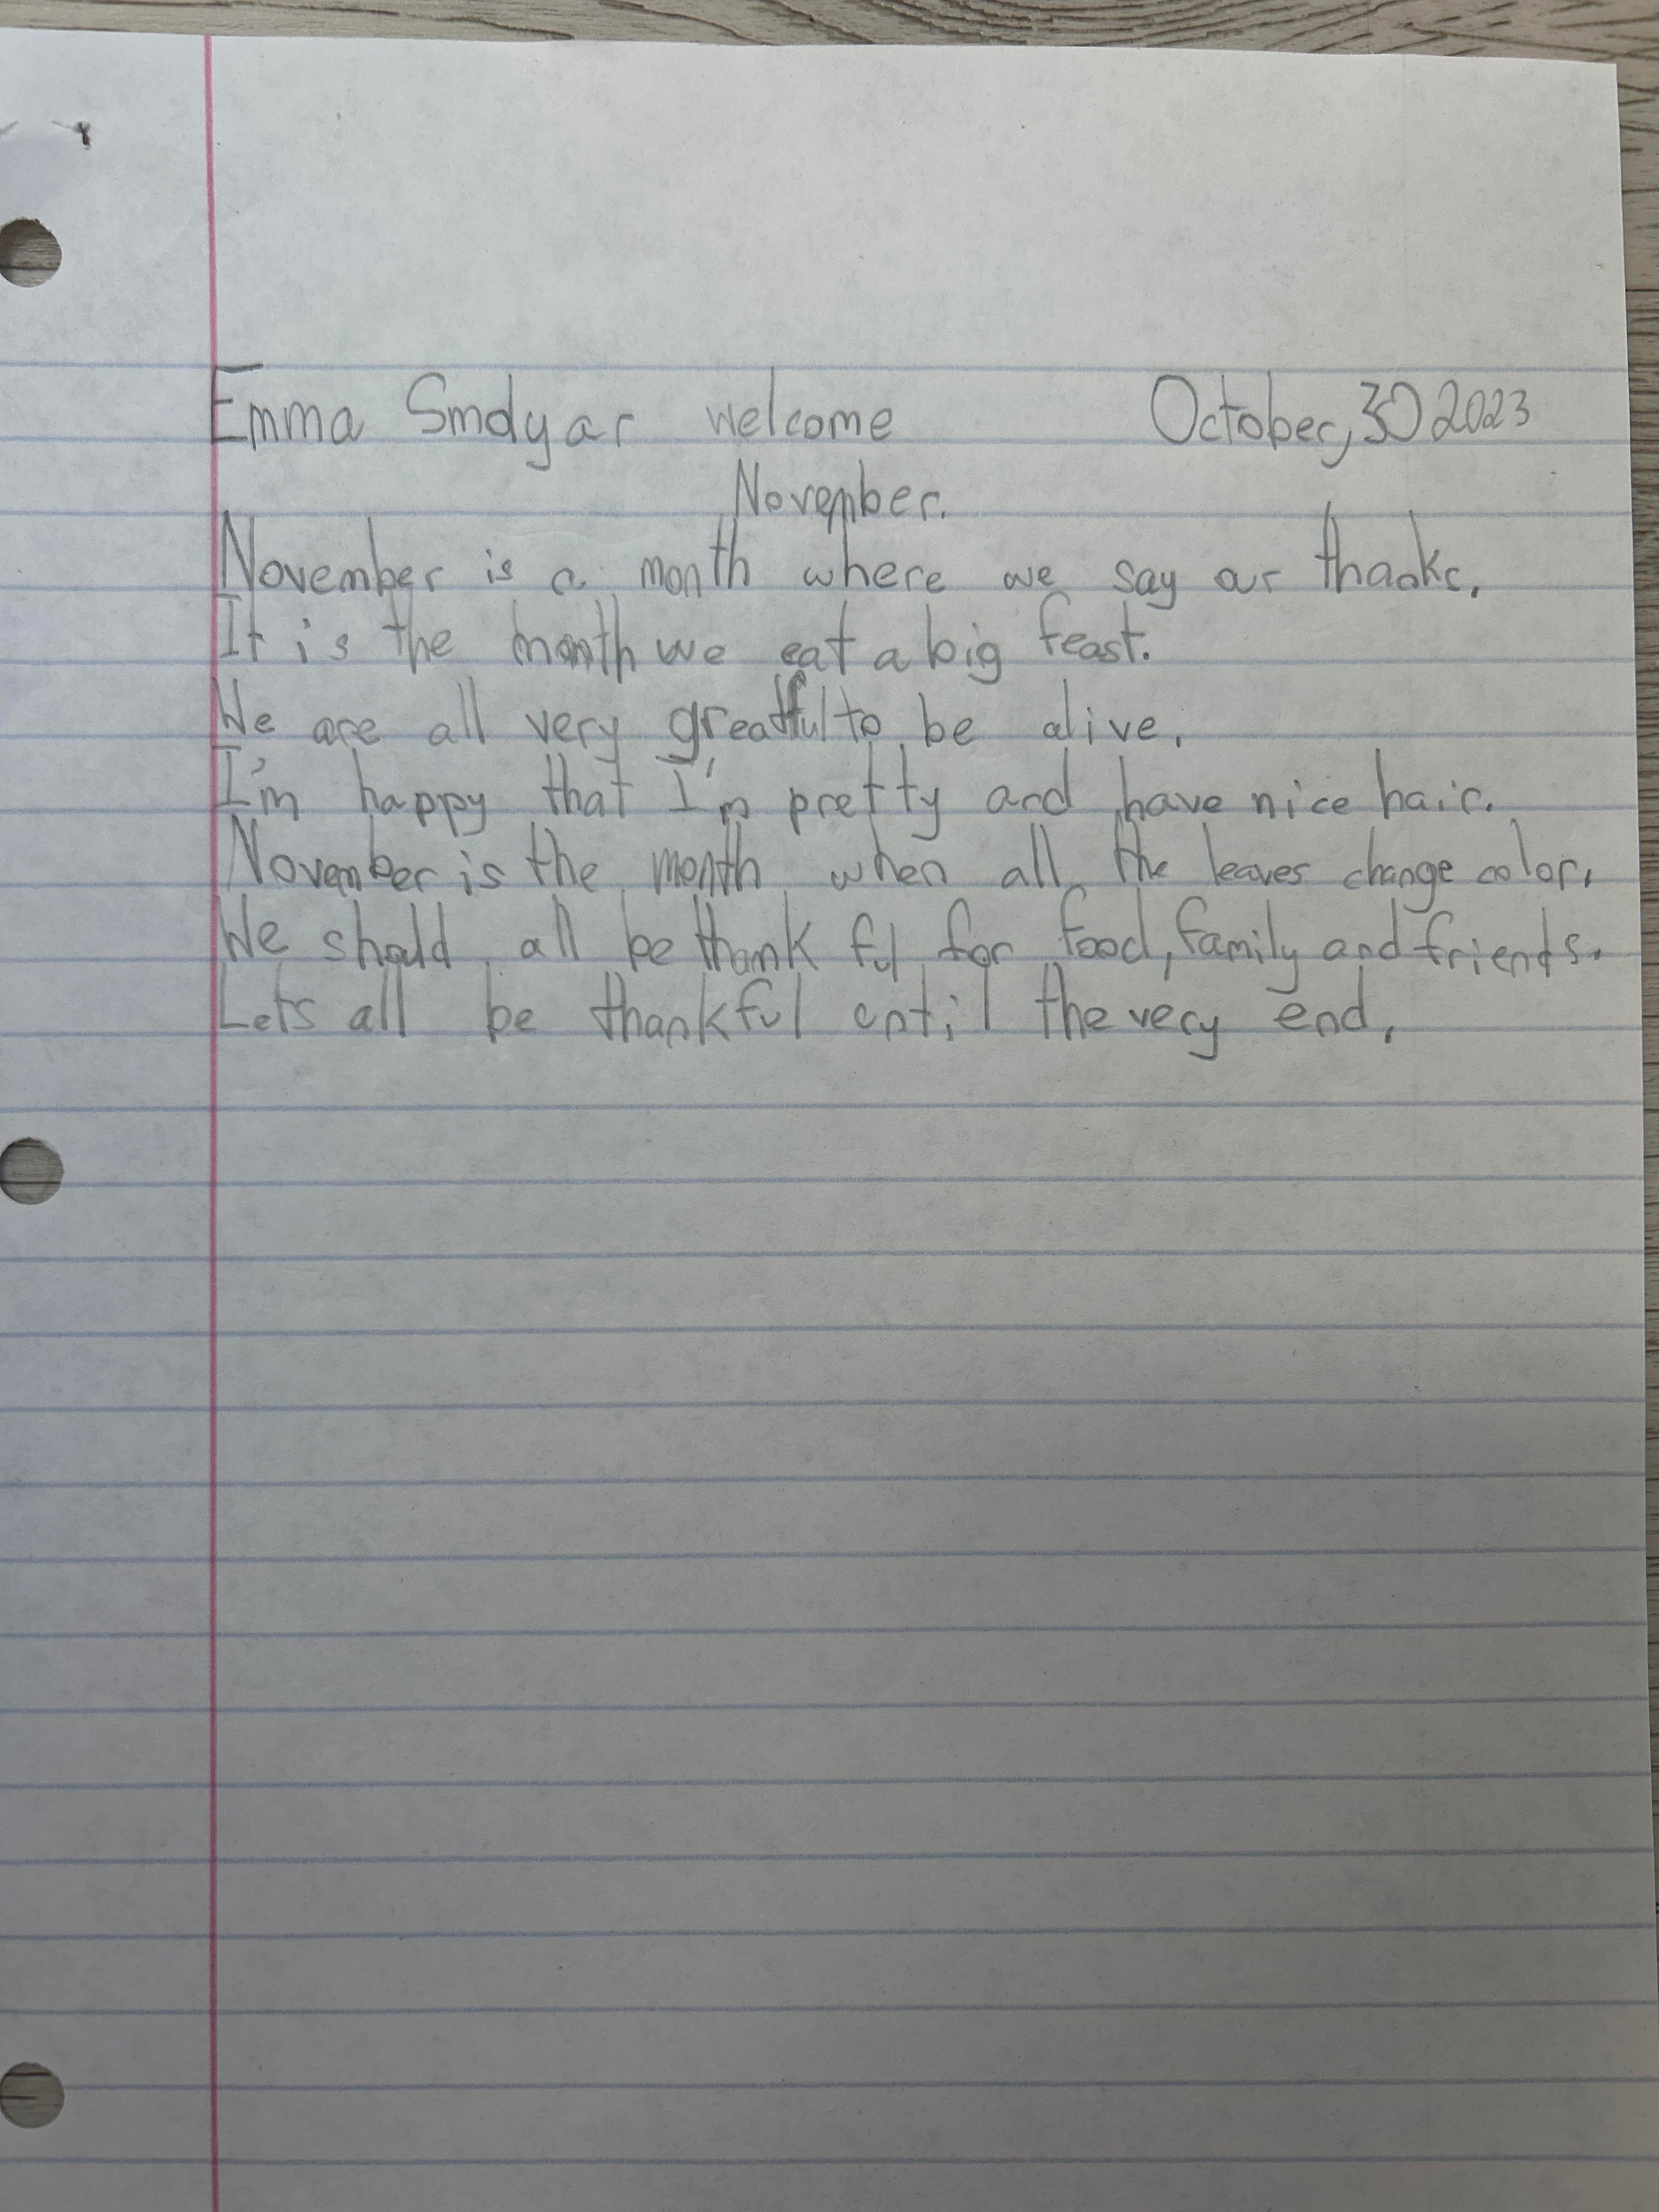 Emma Smdyar welcome October, 30 2023
November.
November is a month where we say our thanks.
It is the month we eat a big feast.
We are all very greatful to be alive.
I'm happy that I'm pretty and have nice hair.
November is the month when all the leaves change color.
We should all be thank ful for food, family and friends.
Lets all be thankful until the very end.